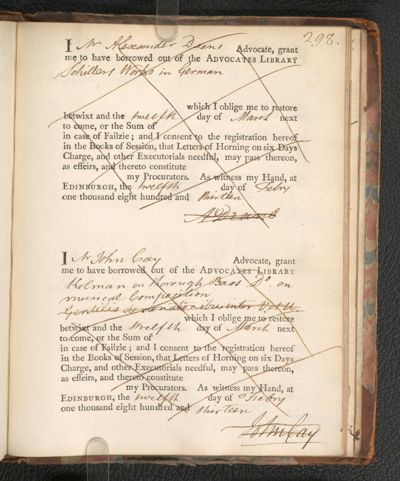 298.
I Mr Alexander Deans Advocate, grant
me to have borrowed out of the ADVOCATES LIBRARY
Schillers Works in German
which I oblige me to restore
betwixt and the twelfth day of March next
to come, or the Sum of
in case of Failzie; and I consent to the registration hereof
in the Books of Session, that Letters of Horning on six Days
Charge, and other Executorials needful, may pass thereon,
as effeirs, and thereto constitute
my Procurators. As witness my Hand, at
EDINBURGH, the twelfth day of Febry
one thousand eight hundred and thirteen
A Deans
I Mr John Cay Advocate, grant
me to have borrowed out of the ADVOCATES LIBRARY
Kolman on thorough Bass Do. on
musical Composition
Gentilis de donationibus inter
which I oblige me to restore
betwixt and the twelfth day of March next
to come, or the Sum of
in case of Failzie; and I consent to the registration hereof
in the Books of Session, that Letters of Horning on six Days
Charge, and other Executorials needful, may pass thereon,
as effeirs, and thereto constitute
my Procurators. As witness my Hand, at
EDINBURGH, the twelfth day of Febry
one thousand eight hundred and thirteen
John Cay